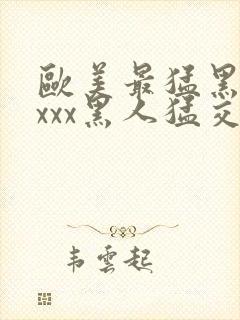 歐美最猛黑
xxx黑人猛交
韦雲起